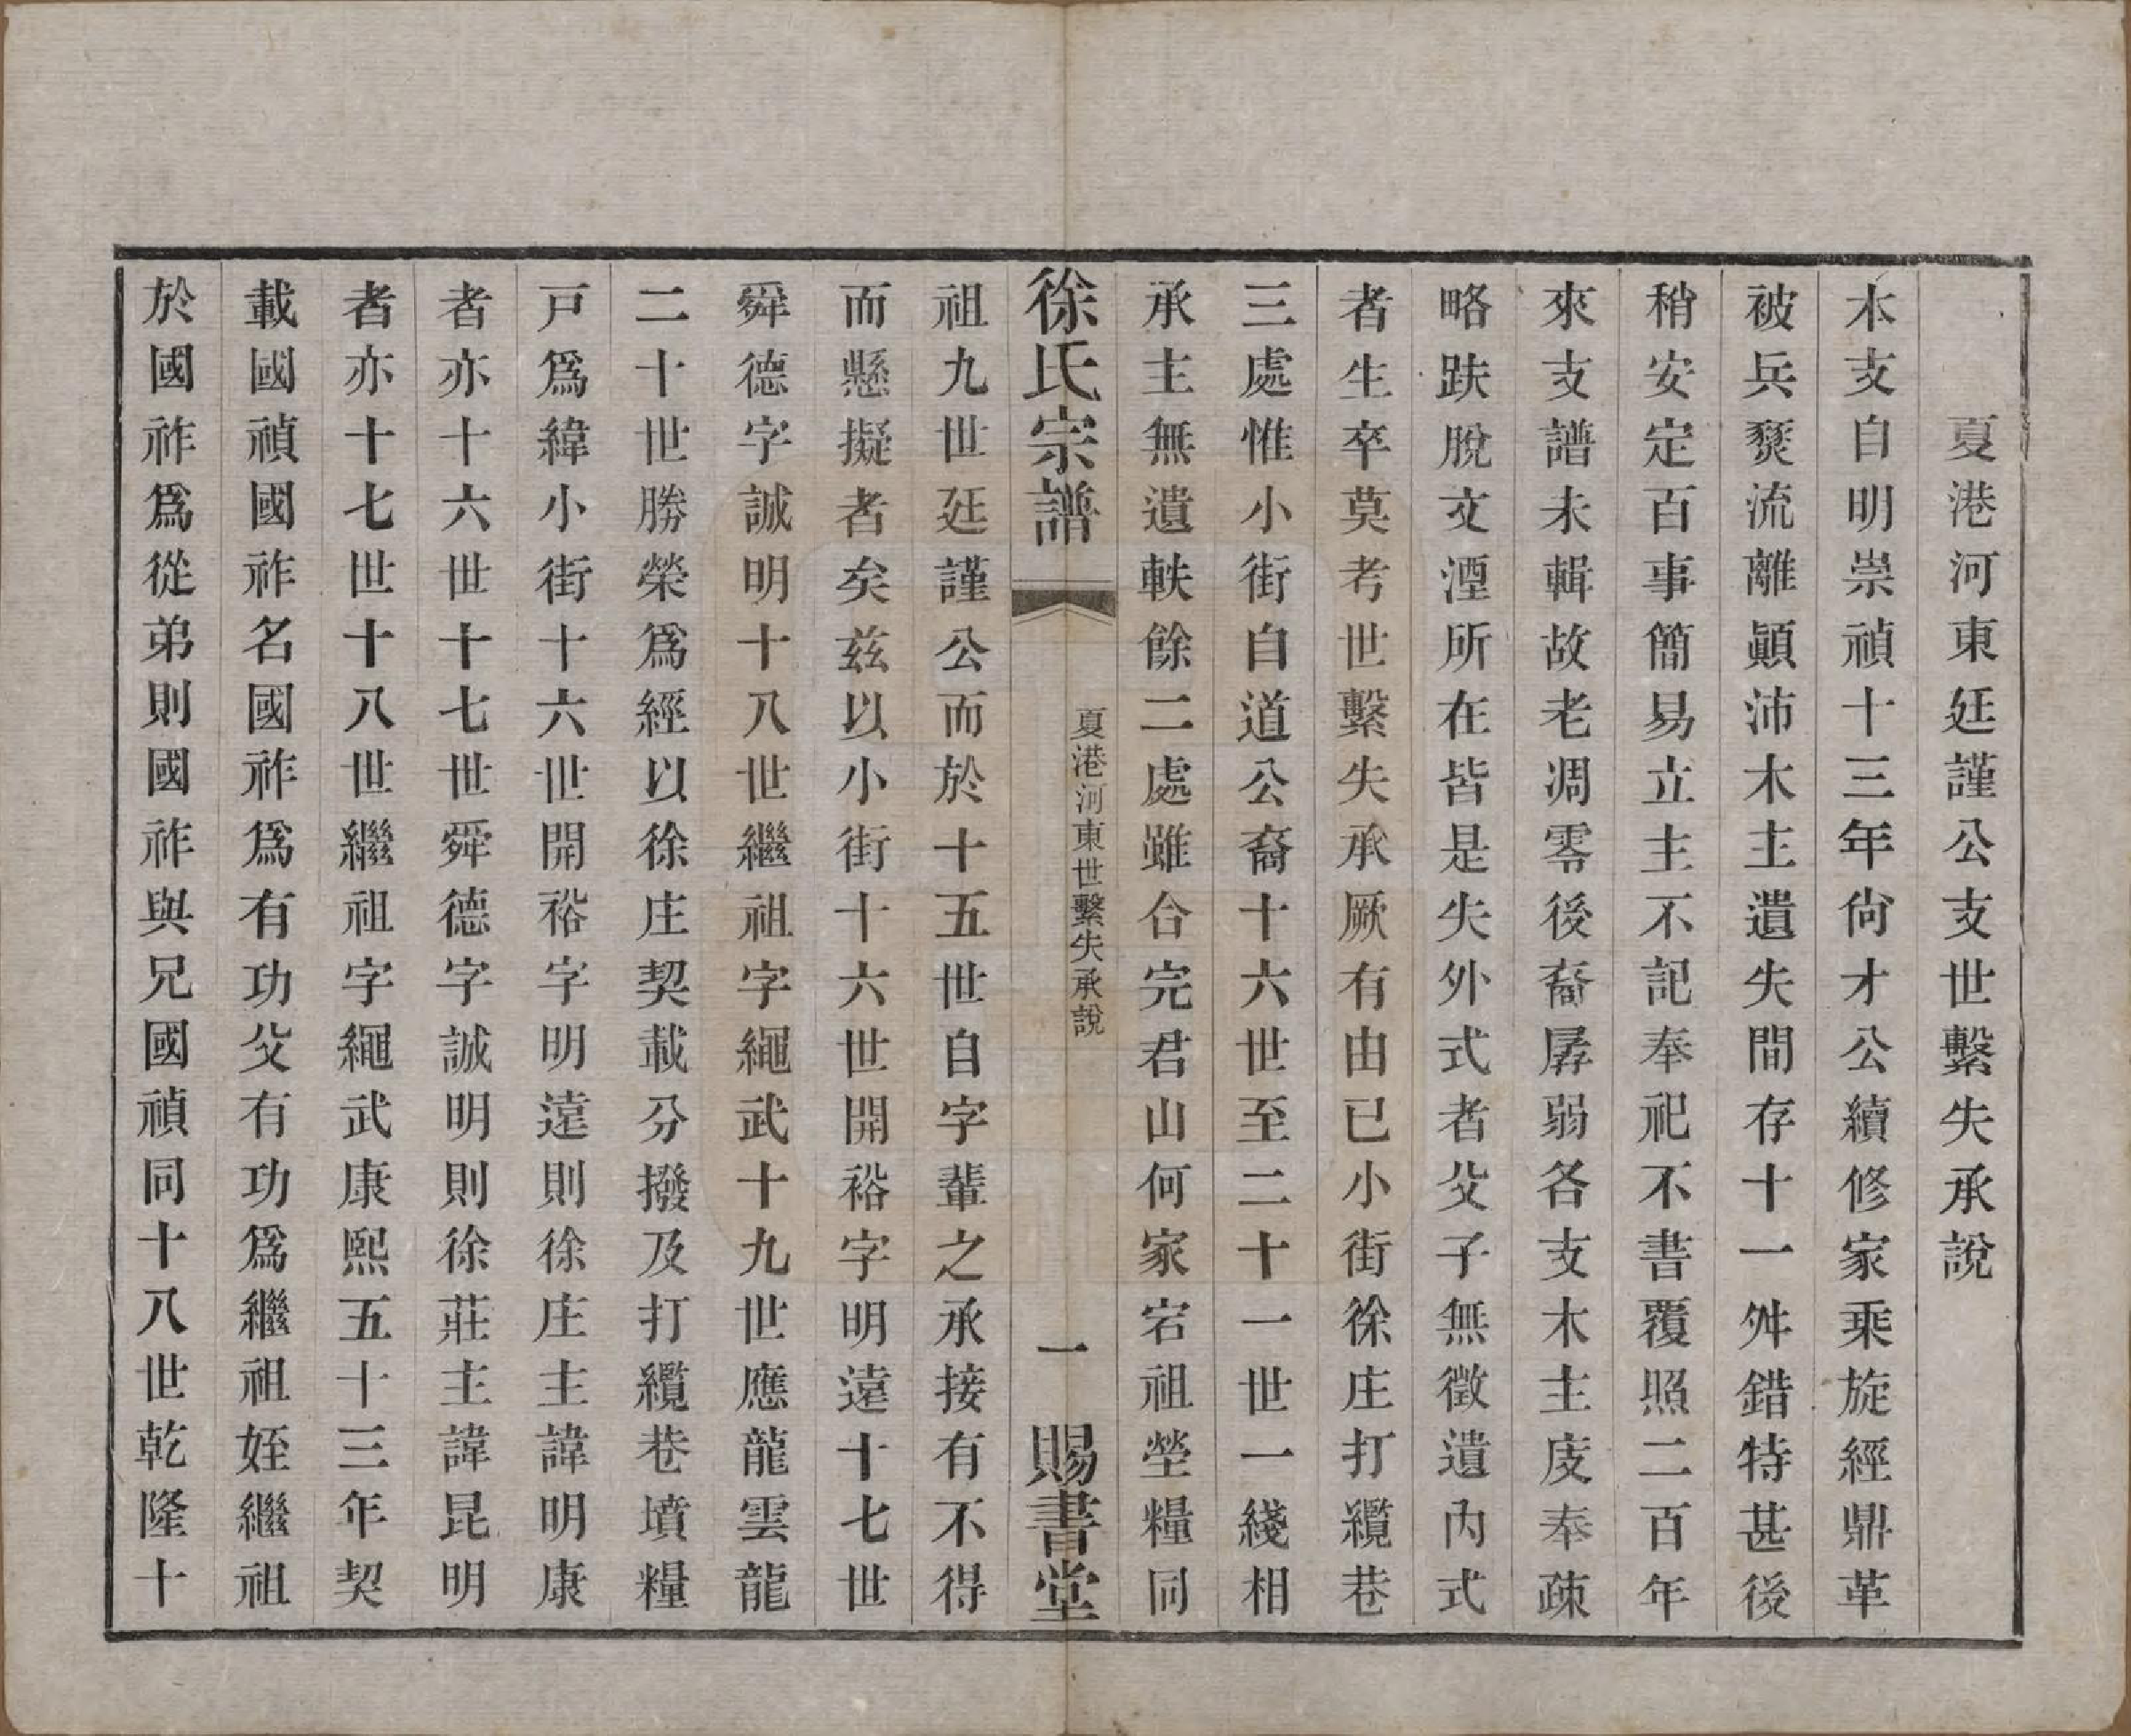 夏港河東廷謹公支世繫失承說
本支自明崇禎十三年尙才公續修家乘旋經鼎革
被兵燹流離顚沛木主遺失間存十一舛錯特甚後
稍安定百事簡易立主不記奉祀不書覆照二百年
來支譜未輯故老凋零後裔孱弱各支木主庋奉疎
略趺脫文湮所在皆是失外式者父子無徵遺內式
者生卒莫考世繫失承厥有由已小街徐庄打纜巷
三處惟小街自道公裔十六世至二十一世一綫相
承主無遺軼餘二處雖合完君山何家宕祖塋糧同
徐氏宗譜
夏港河東世繫失承說
一
賜書堂
祖九世廷謹公而於十五世自字輩之承接有不得
而懸擬者矣兹以小街十六世開裕字明遠十七世
舜德字誠明十八世繼祖字繩武十九世應龍雲龍
二十世勝榮爲經以徐庄契載分撥及打纜巷墳糧
戸爲緯小街十六世開裕字明遠則徐庄主諱明康
者亦十六世十七世舜德字誠明則徐莊主諱昆明
者亦十七世十八世繼祖字繩武康熙五十三年契
載國禎國祚名國祚爲有功父有功爲繼祖姪繼祖
於國祚爲從弟則國祚與兄國禎同十八世乾隆十